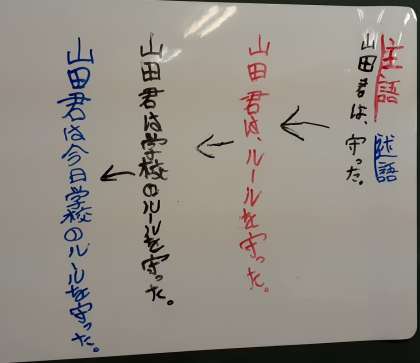 主語
述語
山田君は、守った。
山田君は、ルールを守った。
山田君は学校のルールを守った。
山田君は今日学校のルールを守った。